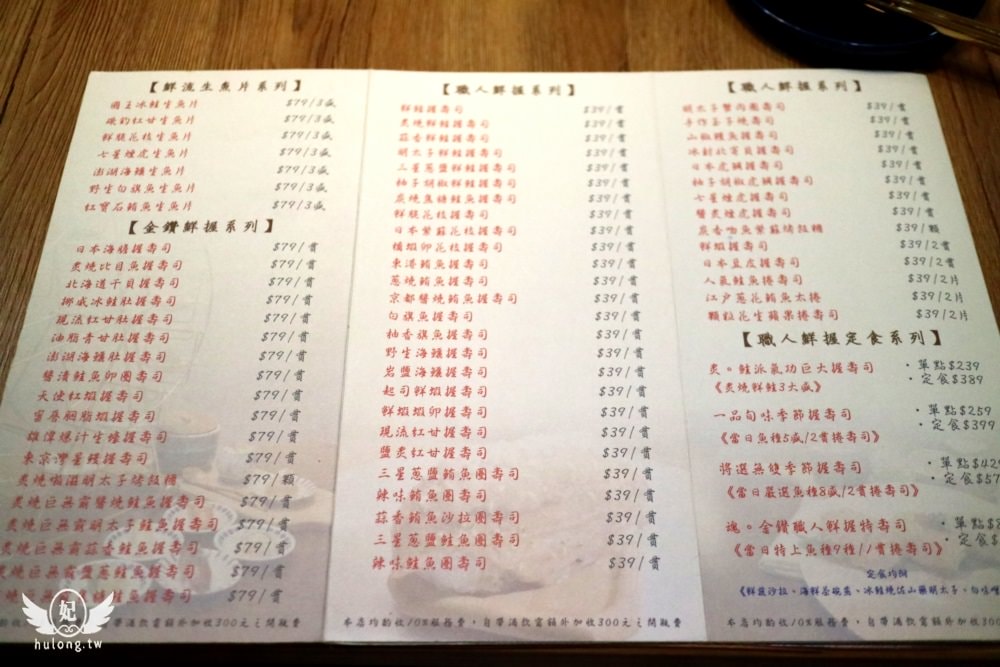 【鮮流生魚片系列】
國王冰鮭生魚片 $79/3盛
磯釣紅甘生魚片 $79/3盛
鮮脆花枝生魚片 $79/3盛
七星煙虎生魚片 $79/3盛
澎湖海鱺生魚片 $79/3盛
野生白旗魚生魚片 $79/3盛
紅寶石鮪魚生魚片 $79/3盛
【金鑽鮮握系列】
日本海膽握壽司 $79/貫
炙燒比目魚握壽司 $79/貫
北海道干貝握壽司 $79/貫
挪威冰鮭肚握壽司 $79/貫
現流紅甘肚握壽司 $79/貫
油脂青甘肚握壽司 $79/貫
澎湖海鱺肚握壽司 $79/貫
醬漬鮭魚卵團壽司 $79/貫
天使紅蝦握壽司 $79/貫
富層胭脂蝦握壽司 $79/貫
雄偉爆汁生蠔握壽司 $79/貫
東京灣星鰻握壽司 $79/貫
炙燒嗡滋明太子烤飯糰 $79/顆
炙燒巨無霸醬燒鮭魚握壽司 $79/貫
炙燒巨無霸明太子鮭魚握壽司 $79/貫
炙燒巨無霸蒜香鮭魚握壽司 $79/貫
炙燒巨無霸鹽蔥鮭魚握壽司 $79/貫
鮭魚握壽司 $79/貫
【職人鮮握系列】
鮮鮭握壽司 $39/貫
炙燒鮮鮭握壽司 $39/貫
蒜香鮮鮭握壽司 $39/貫
明太子鮮鮭握壽司 $39/貫
三星蔥鹽鮮鮭握壽司 $39/貫
柚子胡椒鮮鮭握壽司 $39/貫
炙燒焦糖鮭魚握壽司 $39/貫
鮮脆花枝握壽司 $39/貫
日本紫蘇花枝握壽司 $39/貫
橘蝦卵花枝握壽司 $39/貫
東港鮪魚握壽司 $39/貫
蔥燒鮪魚握壽司 $39/貫
京都醬燒鮪魚握壽司 $39/貫
白旗魚握壽司 $39/貫
柚香旗魚握壽司 $39/貫
野生海鱺握壽司 $39/貫
岩鹽海鱺握壽司 $39/貫
起司鮮蝦握壽司 $39/貫
鮮蝦蝦卵握壽司 $39/貫
現流紅甘握壽司 $39/貫
鹽炙紅甘握壽司 $39/貫
三星蔥鹽鮪魚團壽司 $39/貫
辣味鮪魚團壽司 $39/貫
蒜香鮪魚沙拉團壽司 $39/貫
三星蔥鹽鮭魚團壽司 $39/貫
辣味鮭魚團壽司 $39/貫
【職人鮮握系列】
明太子蟹肉團壽司 $39/貫
手作玉子燒壽司 $39/貫
山椒鰻魚握壽司 $39/貫
冰封北寄貝握壽司 $39/貫
日本虎鰕握壽司 $39/貫
柚子胡椒虎鰕握壽司 $39/貫
七星煙虎握壽司 $39/貫
醬炙煙虎握壽司 $39/貫
炭香吻魚紫蘇烤飯糰 $39/顆
鮮蝦握壽司 $39/2貫
日本豆皮握壽司 $39/2貫
人氣鮭魚捲壽司 $39/2片
江戶蔥花鮪魚太捲 $39/2片
顆粒花生蘋果捲壽司 $39/2片
【職人鮮握定食系列】
炙。鮭派氣功巨大握壽司 ・單點$239
《炙燒鮮鮭3大盛》 ・定食$389
一品旬味季節握壽司 ・單點$259
《當日魚種5盛/2貫捲壽司》 ・定食$399
將選無雙季節握壽司 ・單點$42
《當日嚴選魚種8盛/2貫捲壽司》 ・定食$57
魂。金鑽職人鮮握特壽司 ・單點$
《當日特上魚種9種/1貫捲壽司》 ・定食$
定食均附
《鮮蔬沙拉、海鮮茶碗蒸、冰鮭燒佐山藥明太子、白味噌
本店均酌收10%服務費，自帶酒飲需額外加收300元之開瓶費
本店均酌收10%服務費，自帶酒飲需額外加收300元之開瓶費
妃
hulong.tw